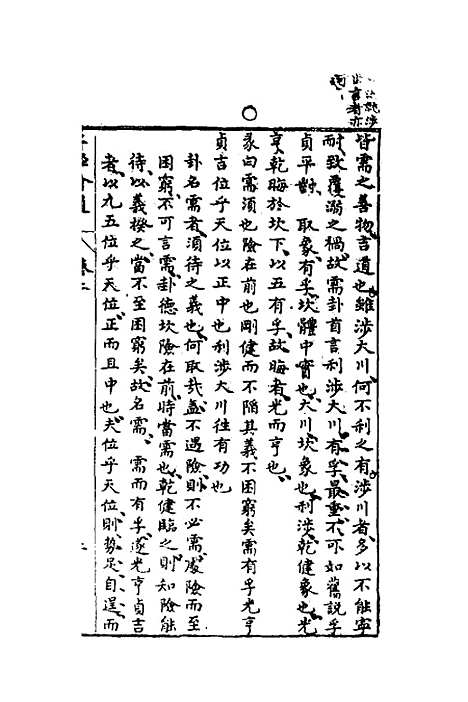 皆需之善物、吉道也、雖涉大川、何不利之有、涉川者、多以不能寧
耐、致覆溺之禍、故需卦首言利涉大川、有孚、最重、不可如舊說孚
貞平對、取象、有孚、坎體中實也、大川、坎象也、利涉、乾健象也、光
亨、乾晦於坎下、以五有孚、故晦者光而亨也、
彖曰需須也險在前也剛健而不陷其義不困窮矣需有孚光亨
貞吉位乎天位以正中也利涉大川往有功也
卦名需者、須待之義也、何取哉、蓋不遇險、則不必需、處險而至
困窮、不可言需、卦德坎險在前、時當需也、乾健臨之、則知險能
待、以義揆之、當不至困窮矣、故名需、需而有孚、遂光亨貞吉
者、以九五位乎天位、正而且中也、夫位乎天位、則勢足自逞、而